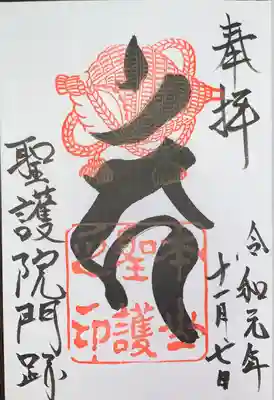 奉拝
令和元年
十一月七日
本
聖護
印
聖護院門跡